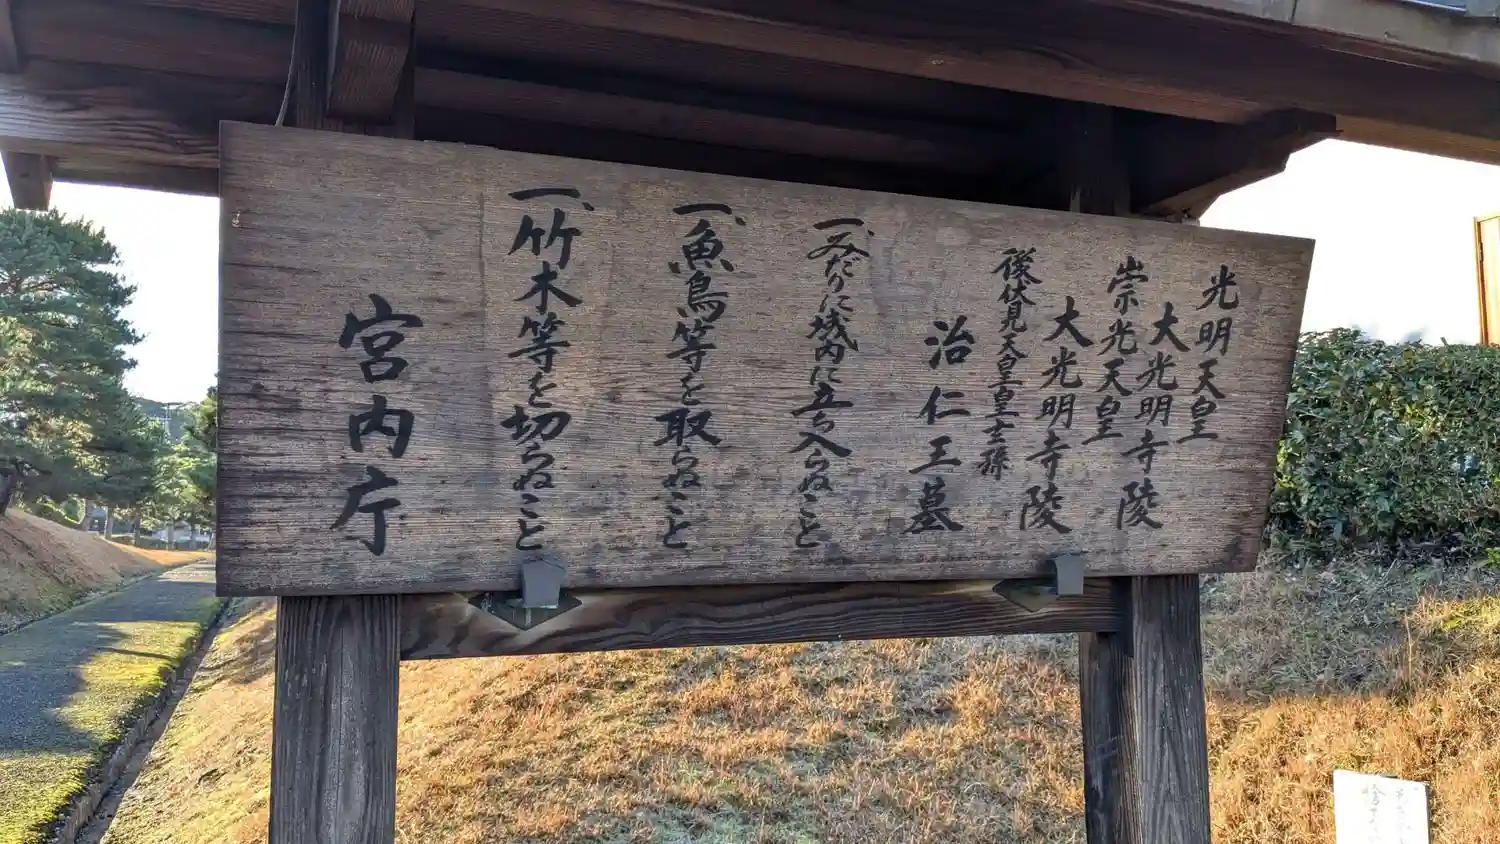 光明天皇
大光明寺陵
崇光天皇
大光明寺陵
後伏見天皇皇曽孫
治仁王墓
一、みだりに域内に立ち入らぬこと
一、魚鳥等を取らぬこと
一、竹木等を切らぬこと
宮内庁